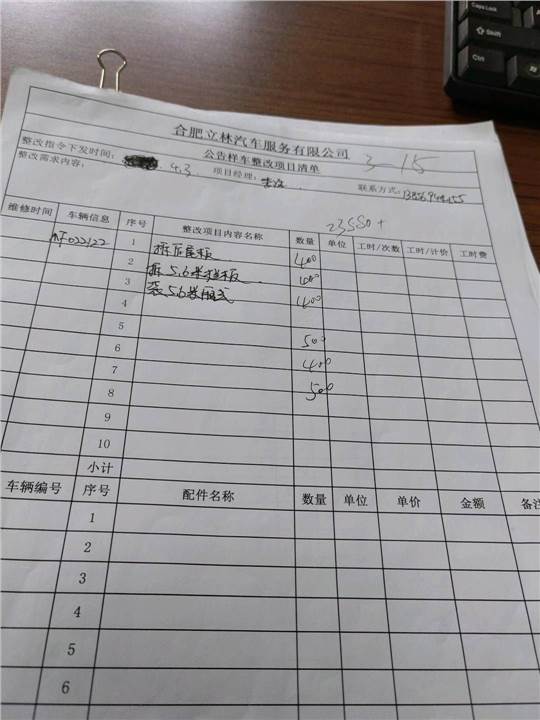 合肥立林汽车服务有限公司
3-15
公告样车整改项目清单
整改指令下发时间: 4.3 项目经理: 联系方式:
整改需求内容:
23580+
维修时间 车辆信息 序号 整改项目内容名称 数量 单位 工时/次数 工时/计价 工时费
1 拆后尾板 400
2 拆5.6米栏板 400
3 装5.6米厢式 400
4
5 500
6 400
7 500
8
9
10
小计
车辆编号 序号 配件名称 数量 单位 单价 金额 备注
1
2
3
4
5
6